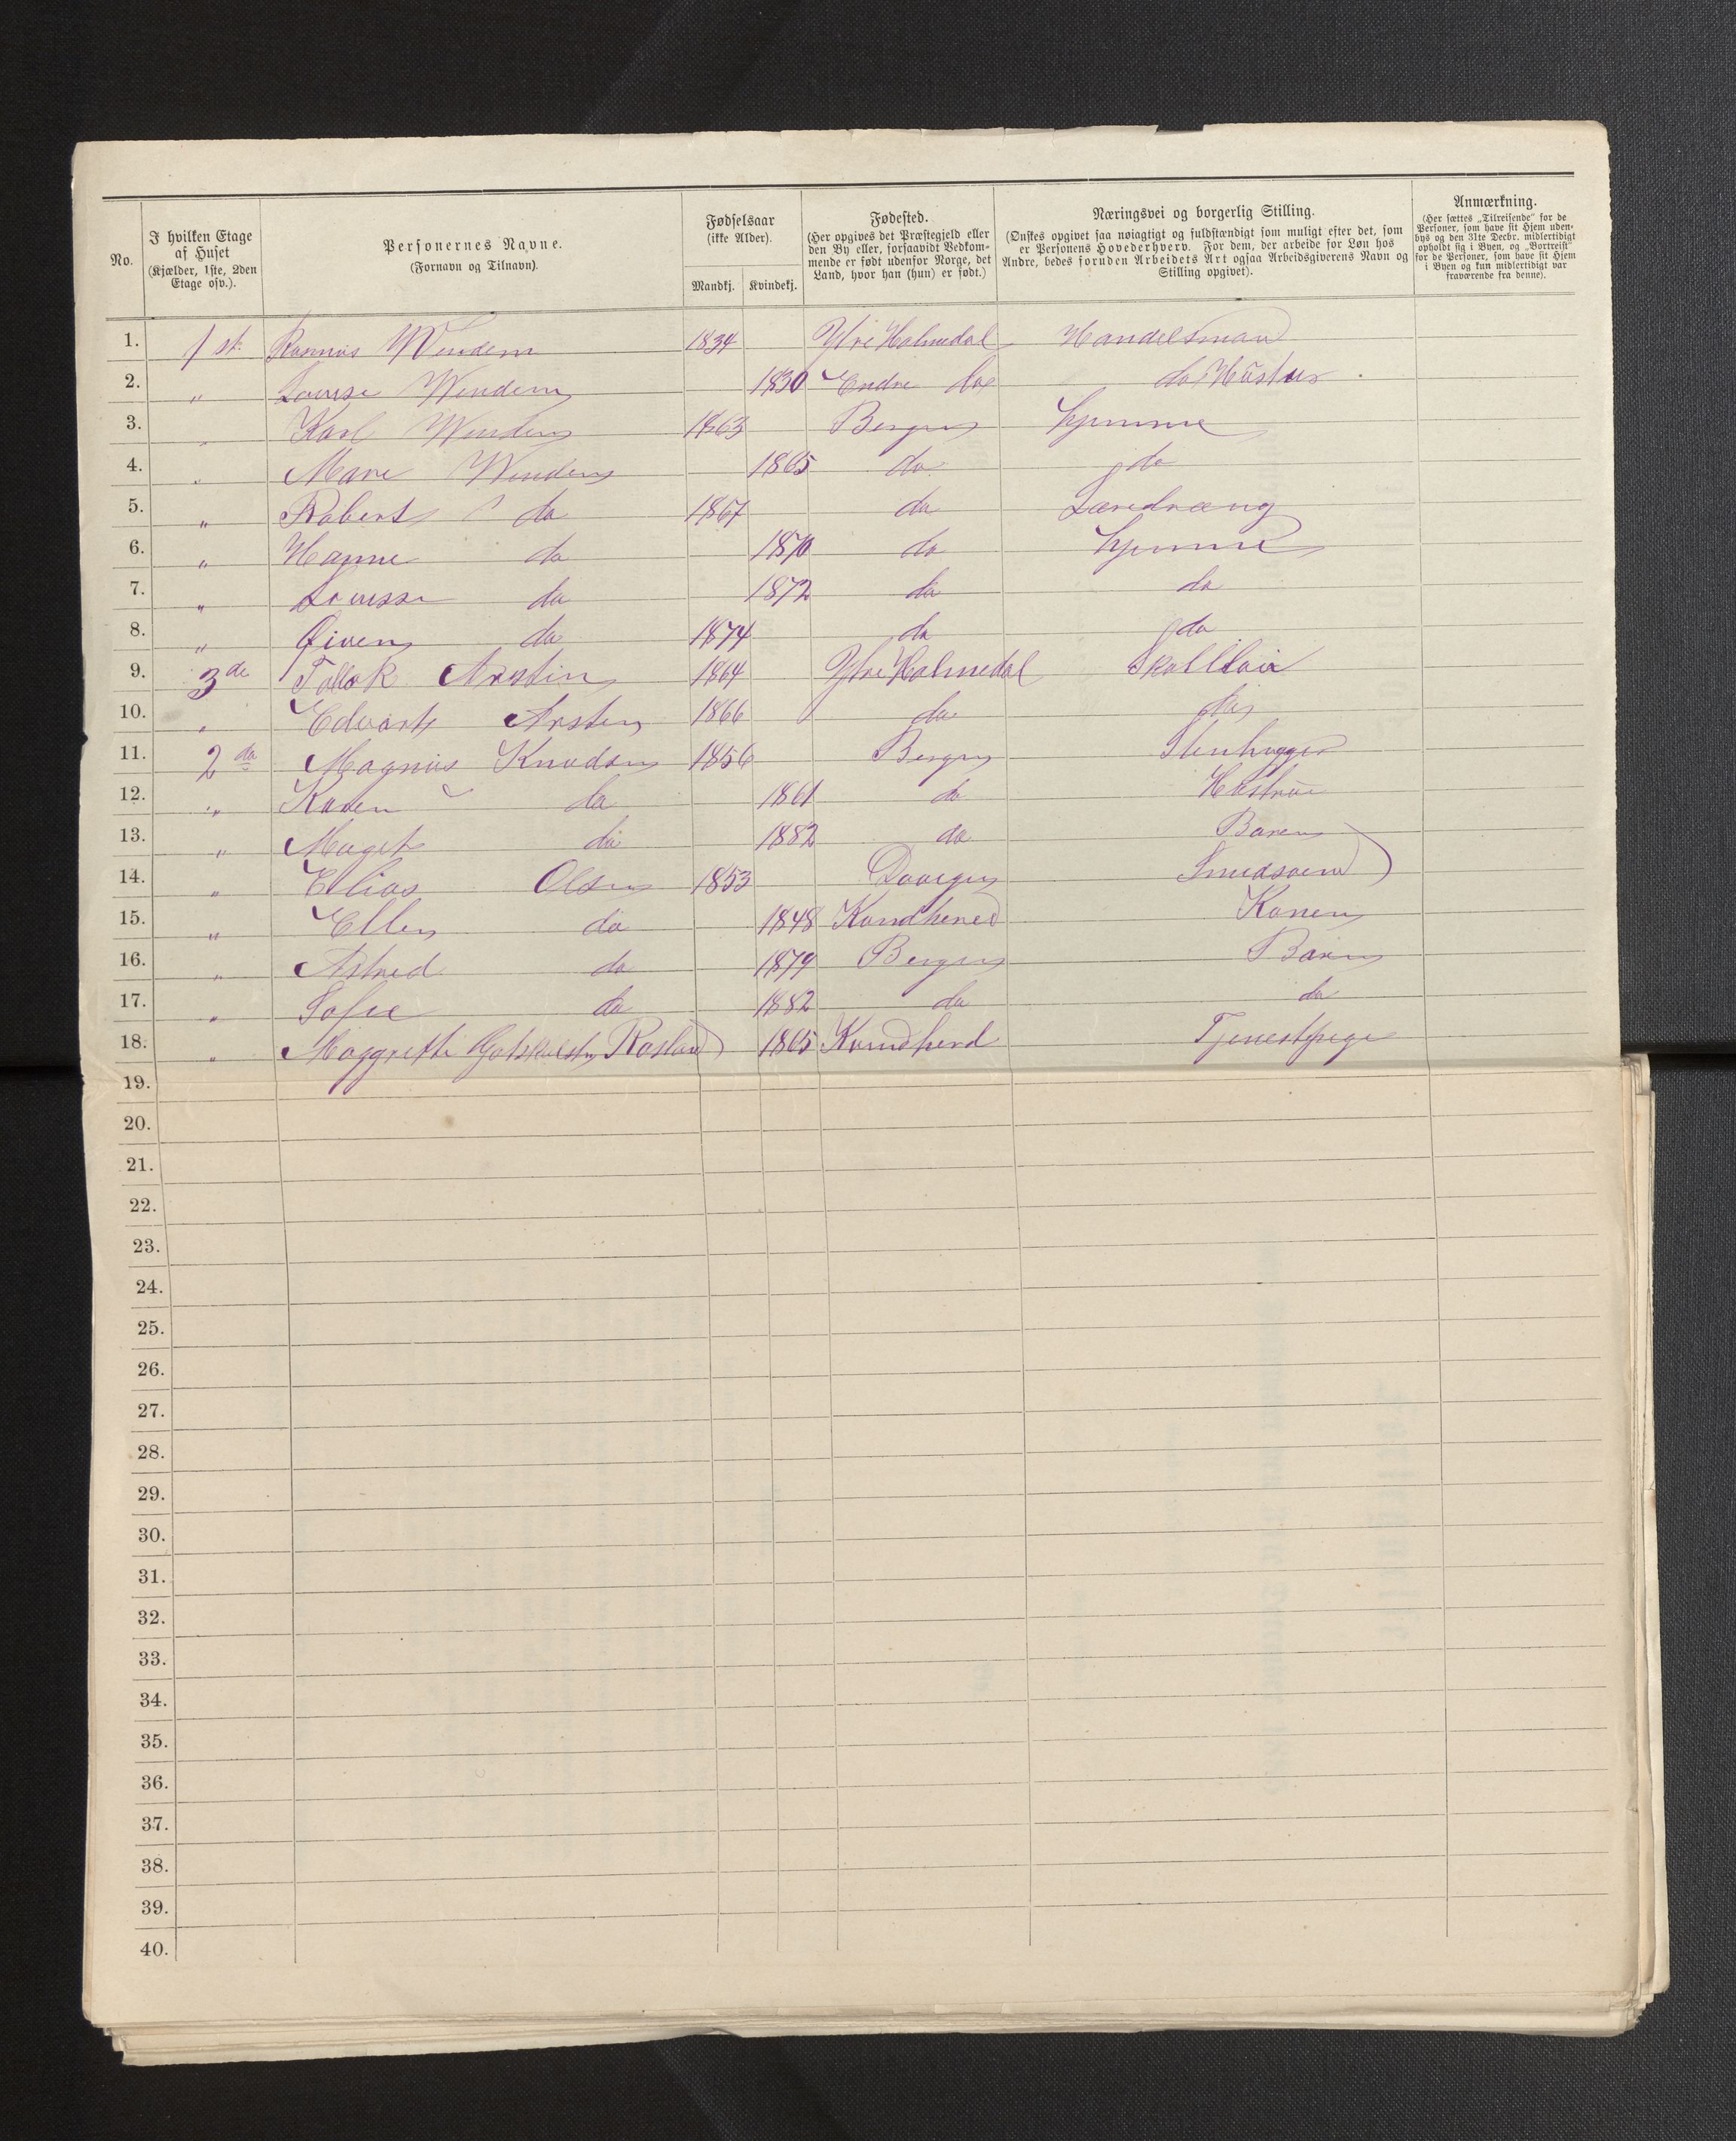 No. | I hvilken Etage af Huset (Kjælder, 1ste, 2den Etage osv.). | Personernes Navne. (Fornavn og Tilnavn). | Fødselsaar (ikke Alder). Mandkj. | Kvindekj. | Fødested. (Her opgives det Præstegjeld eller den By eller, forsaavidt Vedkommende er født udenfor Norge, det Land, hvor han (hun) er født.) | Næringsvei og borgerlig Stilling. (Ønskes opgivet saa nøiagtigt og fuldstændigt som muligt efter det, som er Personens Hovederhverv. For dem, der arbeide for Løn hos Andre, bedes foruden Arbeidets Art ogsaa Arbeidsgiverens Navn og Stilling opgivet). | Anmærkning. (Her sættes „Tilreisende" for de Personer, som have sit Hjem udenbys og den 31te Decbr. midlertidigt opholdt sig i Byen, og „Bortreist" for de Personer, som have sit Hjem i Byen og kun midlertidigt var fraværende fra denne).
1. 1 st. Rasmus Windem 1834 Ytre Holmedal Handelsman
2. " Lovise Windem 1830 Endre do do Hustur
3. " Karl Winden 1863 Bergen hjemme
4. " Marie Winden 1865 do do
5. " Robert do 1867 do Læredræng
6. " Hanne do 1870 do hjemme
7. " Lovisse do 1872 do do
8. " Øiven do 1874 do do
9. 3de Tollak Arstin 1864 Ytre Holmedal
10. " Edvart Arsten 1866 do do
11. 2da Magnus Knudsen 1856 Bergen Stenhugger
12. " Karen do 1861 do Hustrue
13. " Maget do 1882 do Baren
14. " Elias Olsen 1853 Smedsvend
15. " Ellen do 1848 Kvndhered Konen
16. " Astred do 1879 Bergen Baren
17. " Sofie do 1882 do do
18. " Maggrethe Rosland 1865 Kvindherd Tjenestpige
19.
20.
21.
22.
23.
24.
25.
26.
27.
28.
29.
30.
31.
32.
33.
34.
35.
36.
37.
38.
39.
40.